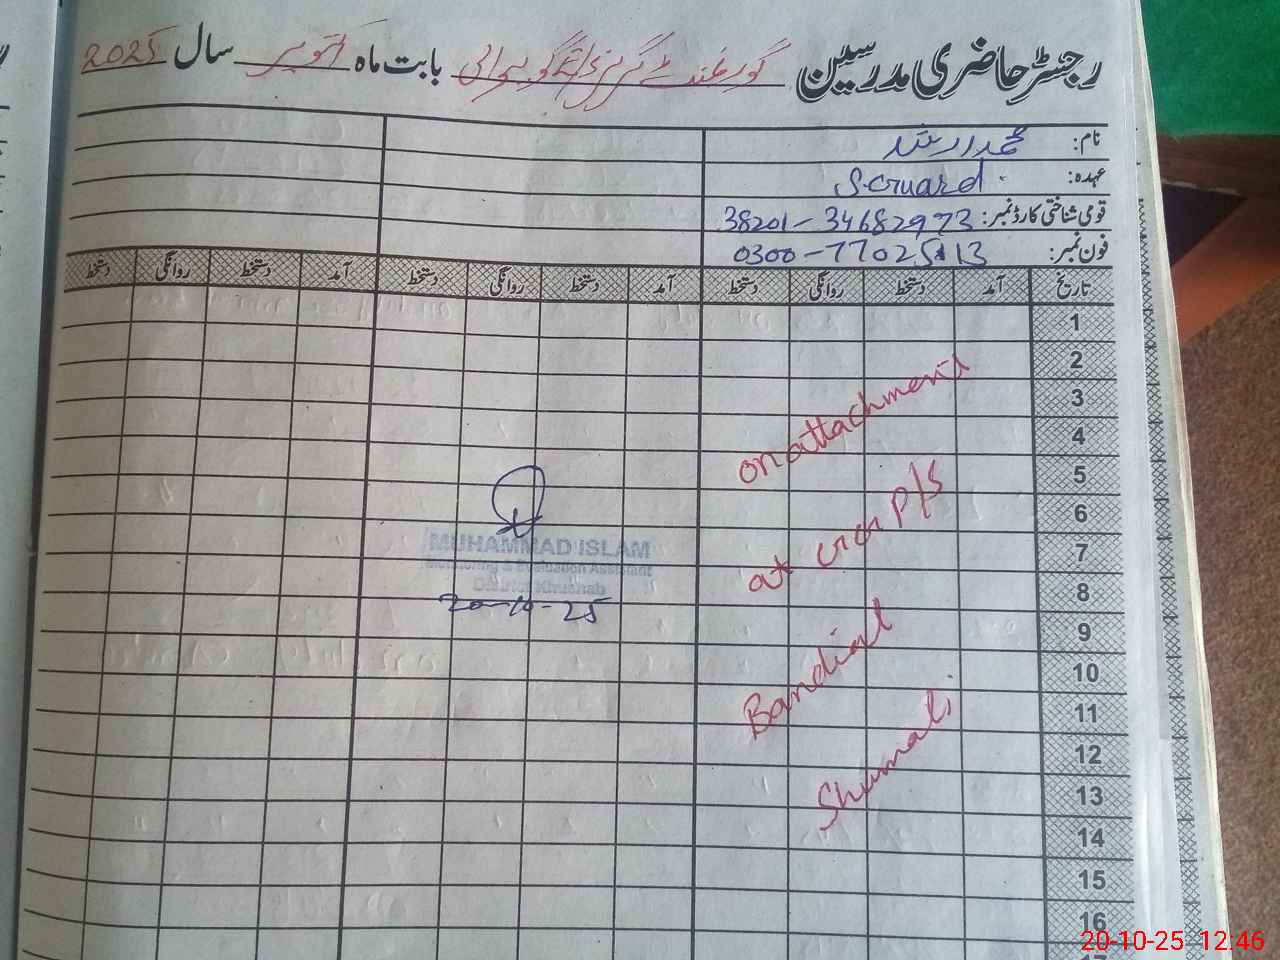 رجسٹر حاضری مدرسین گورنمنٹ گرلز ہائی سکول بابت ماہ اکتوبر سال 2025
نام: محمد ارشد
عہدہ: S.Guard
قومی شناختی کارڈ نمبر: 38201-34682973
فون نمبر: 0300-7702513
تاریخ آمد دستخط روانگی دستخط آمد دستخط روانگی دستخط آمد دستخط روانگی دستخط
1
2
3
4
5
6
7
8
9
10
11
12
13
14
15
16
17
on attachment
at GGPS
Bandial
Shumali
MUHAMMAD ISLAM
Monitoring & Evaluation Assistant
District Khushab
20-10-25
20-10-25 12:46